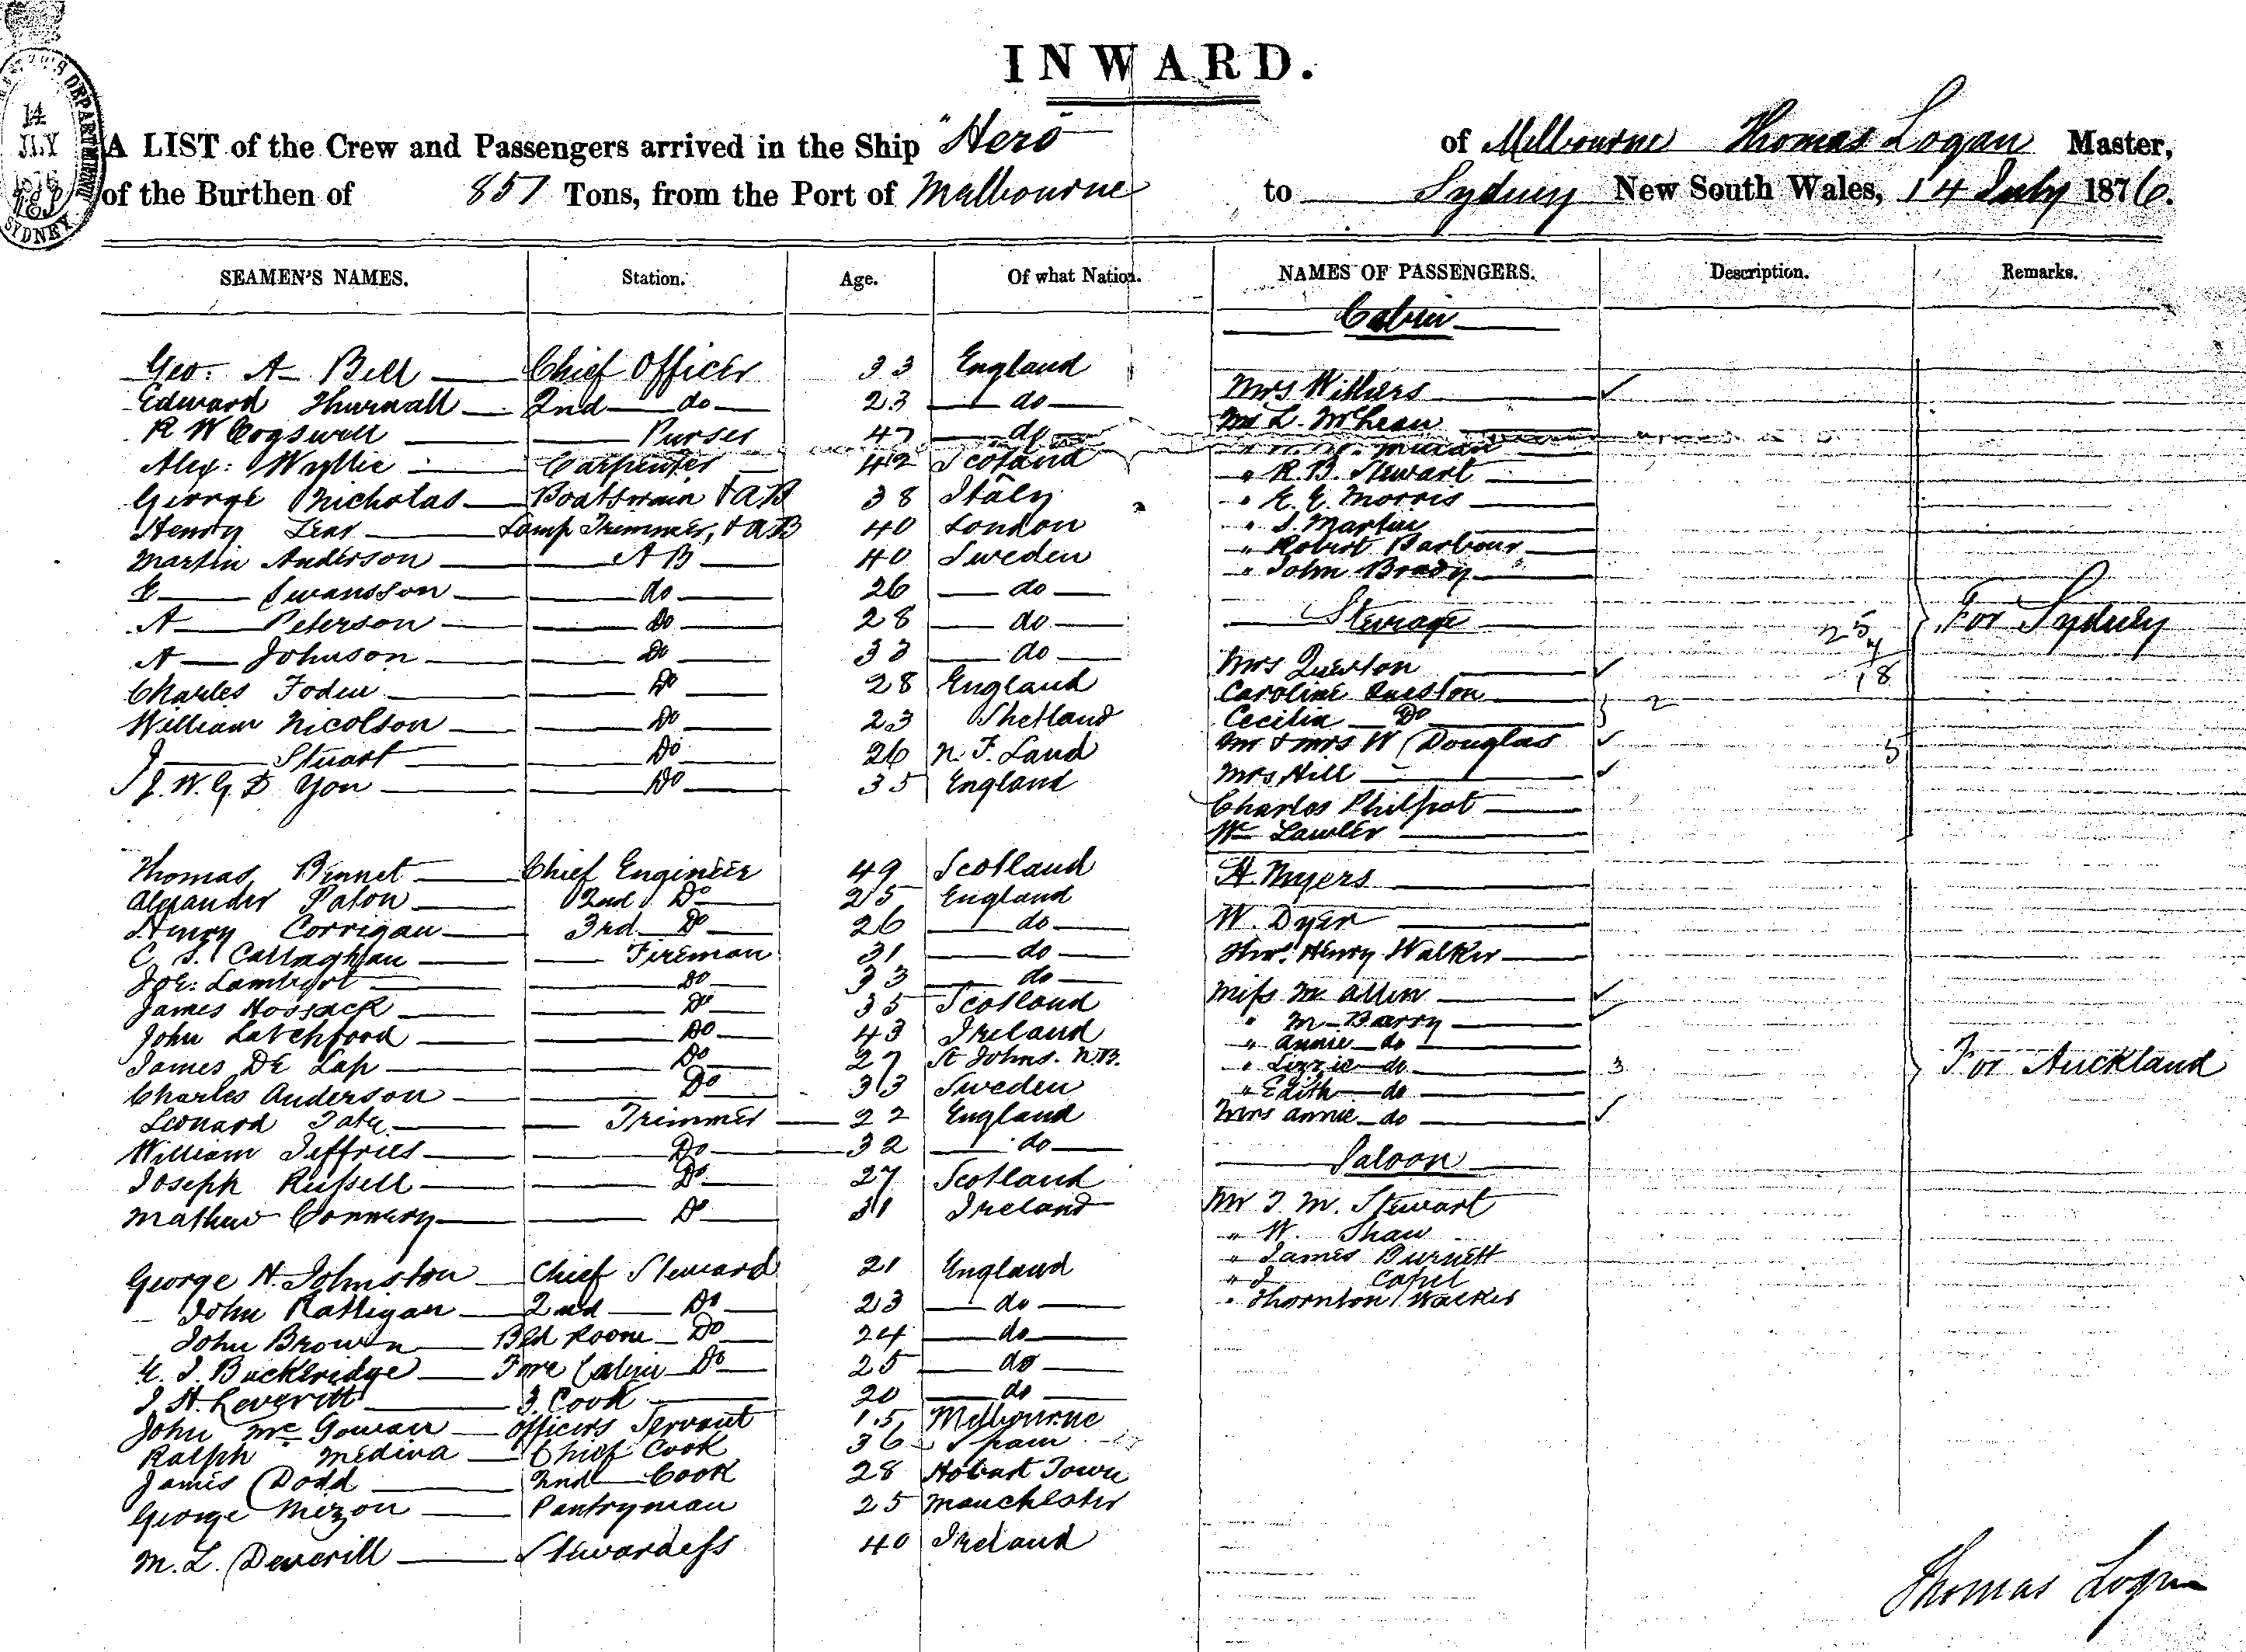 INWARD.
14
JLY
SYDNEY
A LIST of the Crew and Passengers arrived in the Ship "Hero" of Melbourne Thomas Logan Master,
of the Burthen of 851 Tons, from the Port of Melbourne to Sydney New South Wales, 14 July 1876.
SEAMEN'S NAMES. Station. Age. Of what Nation.
Geo: A Bell Chief Officer 33 England
Edward Thurnall 2nd do 23 do
R W Cogswell Purser 47 do
Alex: Wyllie Carpenter 42 Scotland
George Nicholas Boatswain & AB 38 Italy
Henry Lear Lamp Trimmer, & AB 40 London
Martin Anderson AB 40 Sweden
E Swansson do 26 do
A Peterson Do 28 do
A Johnson Do 33 do
Charles Foden Do 28 England
William Nicolson Do 23 Shetland
J Stuart Do 26 N. F. Land
J. W. G. D. Yon Do 35 England
Thomas Binnet Chief Engineer 49 Scotland
Alexander Paton 2nd Do 25 England
Henry Corrigan 3rd Do 26 do
C. S. Callaghan Fireman 31 do
Joe: Lambert Do 33 do
James Hossack Do 35 Scotland
John Latchford Do 43 Ireland
James De Lap Do 27 St Johns. N.B.
Charles Anderson Do 33 Sweden
Leonard Trimmer 22 England
William Jeffries Do 32 do
Joseph Russell Do 27 Scotland
Mathew Connery Do 31 Ireland
George H. Johnston Chief Steward 21 England
John Rattigan 2nd Do 23 do
John Brown Bed Room Do 24 do
E. J. Buckeridge Fore Cabin Do 25 do
J. H. Leveritt 3. Cook 20 do
John McGowan Officers Servant 15 Melbourne
Ralph Medina Chief Cook 36 Spain
James Dodd 2nd Cook 28 Hobart Town
George Mezon Pantryman 25 Manchester
M. L. Deverill Stewardess 40 Ireland
NAMES OF PASSENGERS. Description. Remarks.
Cabin
Mrs Williers
Mr L. McLean
" R. B. Stewart
" E. E. Morris
" J. Martin
" Robert Barbour
" John Brady
Steerage
25
7
18
For Sydney
Mrs Queston
Caroline Queston
Cecilia Do 2
Mr & Mrs W Douglas
5
Mrs Hill
Charles Philpot
Wm Lawler
H. Myers
W. Dyer
Thos. Henry Walker
Miss M. Allen
" M. Barry
" Annie do
" Lizzie do 3
" Edith do
Mrs Annie do
For Auckland
Saloon
Mr J. M. Stewart
" W. Shaw
" James Burnett
" J Capel
" Thornton Walker
Thomas Logan